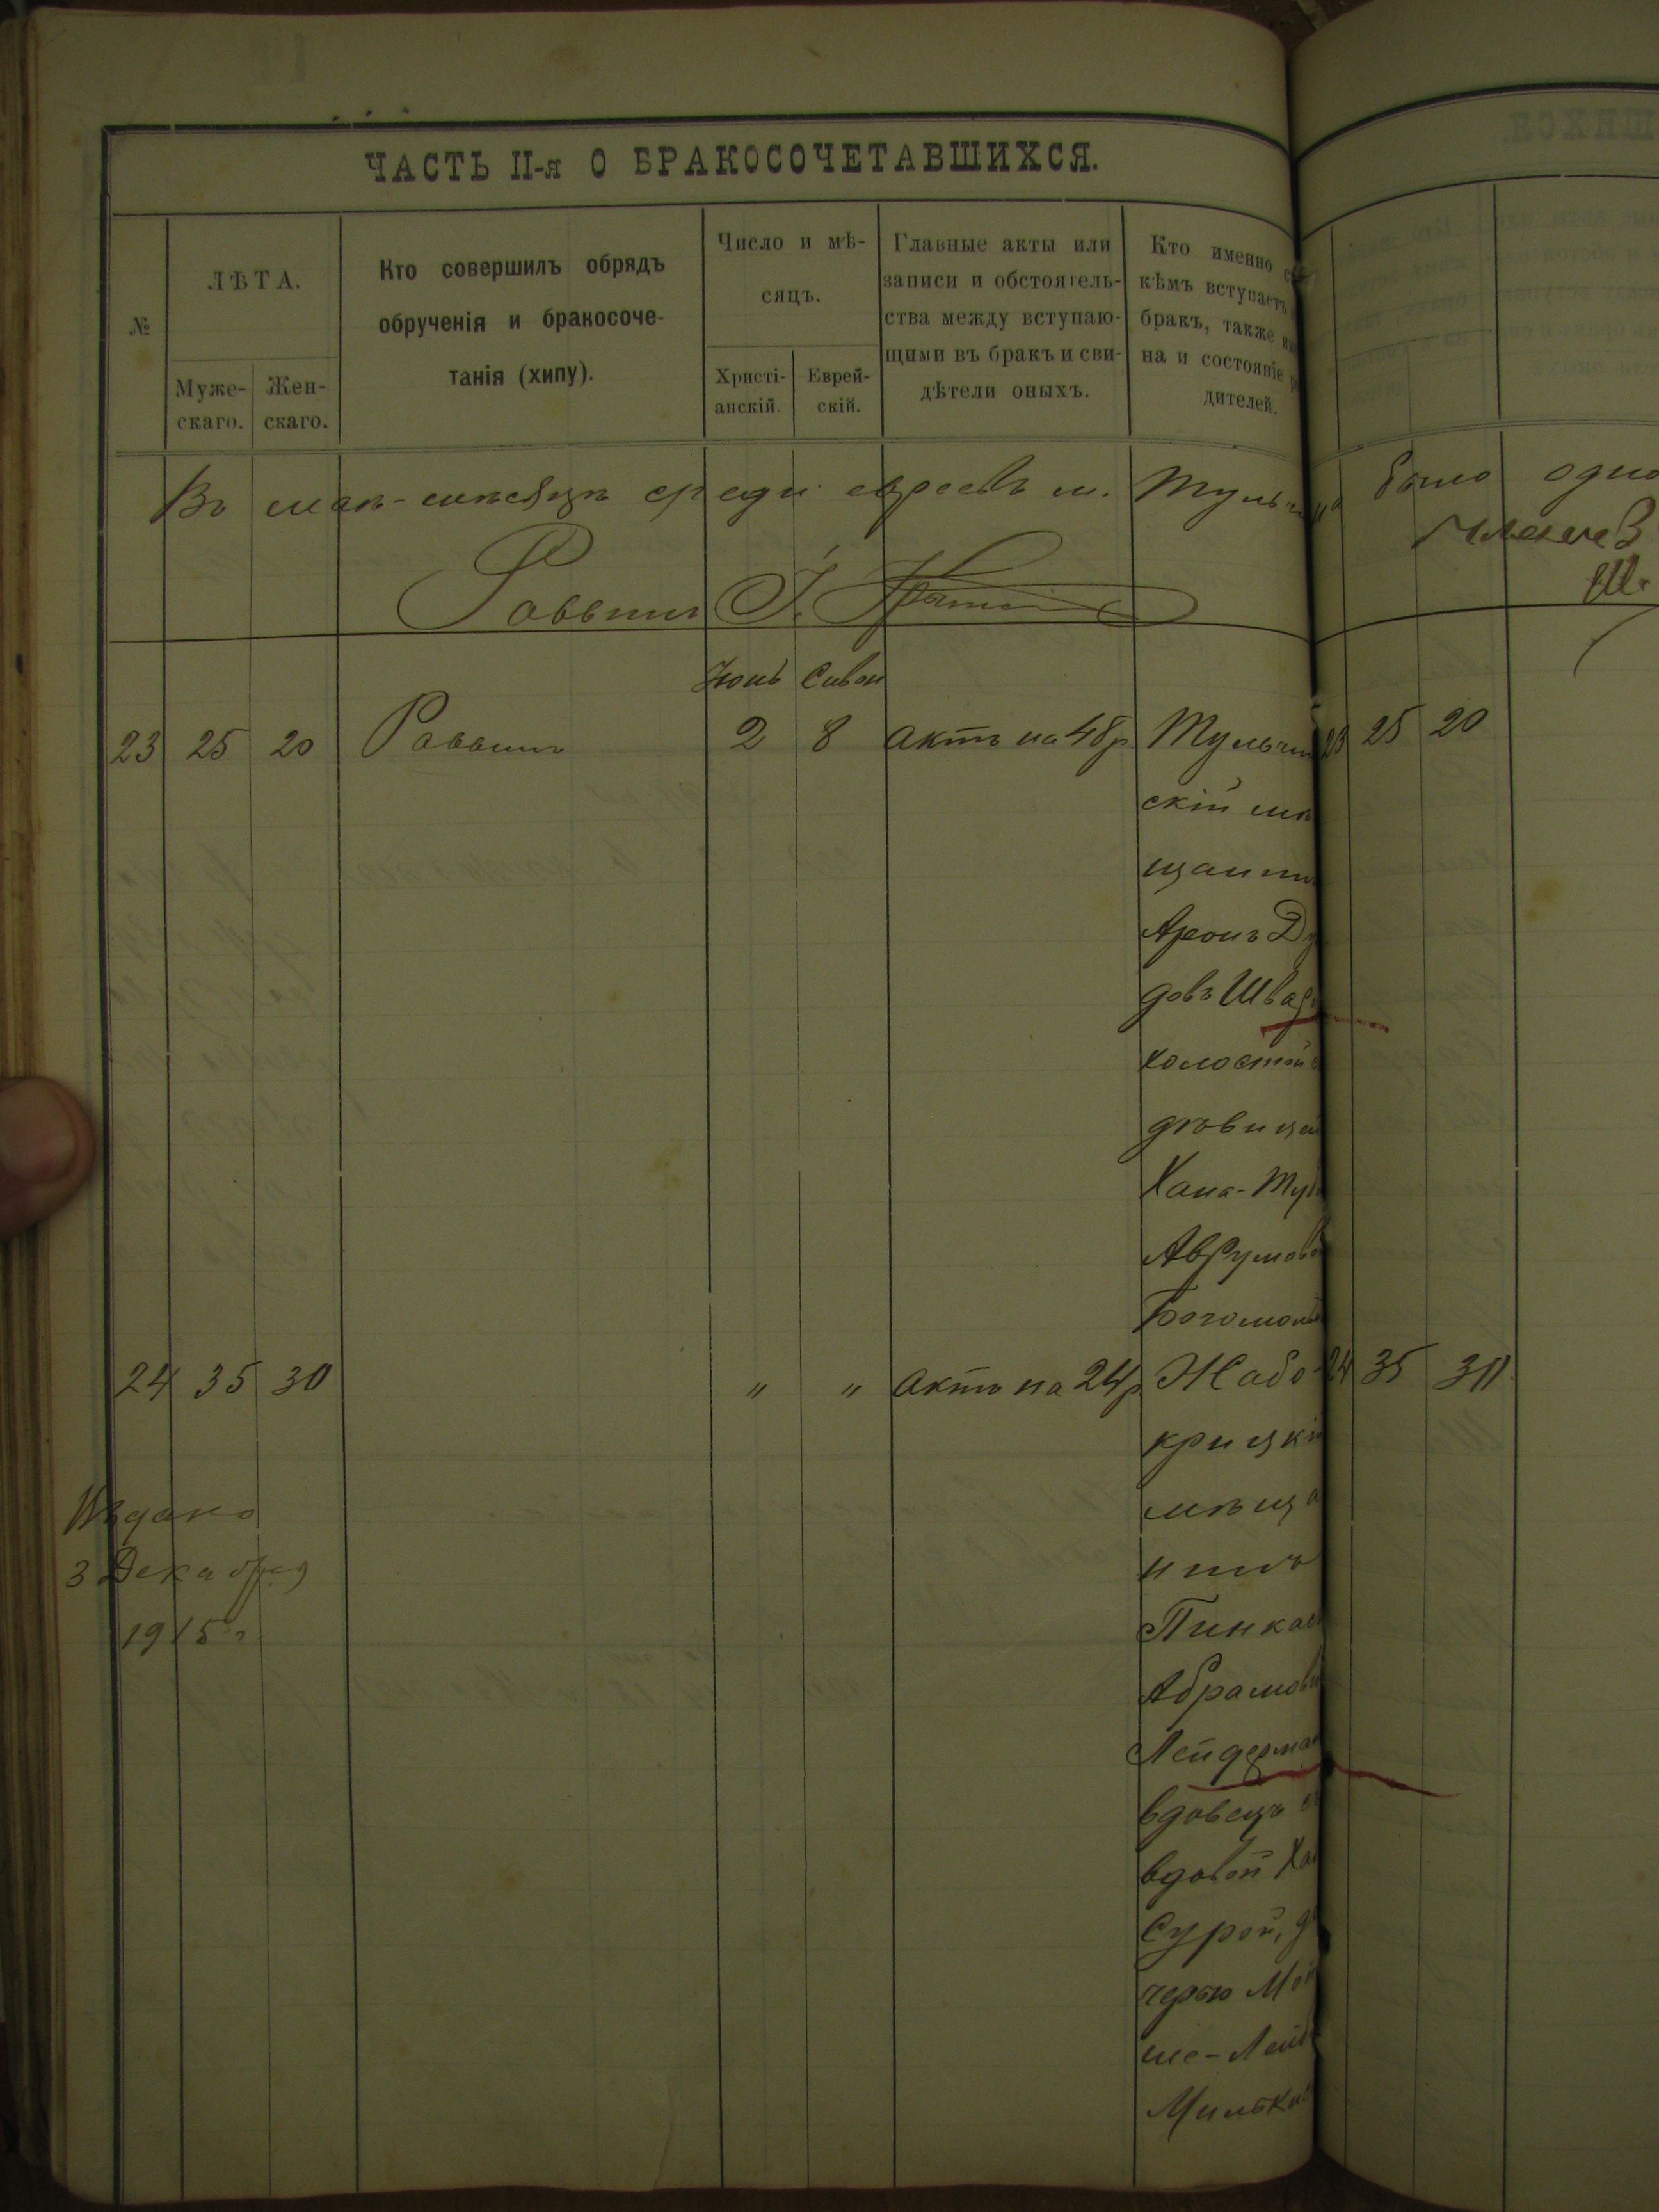 ЧАСТЬ II-я О БРАКОСОЧЕТАВШИХСЯ.
№
ЛѢТА.
Муже-
скаго.
Жен-
скаго.
Кто совершилъ обрядъ
обрученія и бракосоче-
танія (хипу).
Число и мѣ-
сяцъ.
Христі-
анскій.
Еврей-
скій.
Главные акты или
записи и обстоятель-
ства между вступаю-
щими въ бракъ и сви-
дѣтели оныхъ.
Кто именно съ
кѣмъ вступаетъ
бракъ, также
на и состояніе
дителей.
Въ маѣ-мѣсяцѣ среди евреевъ м. Тульчи было одно
Раввинъ І.
Іюнь Сиван
23 25 20 Раввинъ 2 8 актъ на 48 р. Тульчин 23 25 20
скій мѣ
щанин
Аронъ Ду
довъ Швар
холостой с
дѣвицей
Хана-Туб
Аврумово
Богомоль
24 35 30 " " актъ на 24 р Жабо- 24 35 30
крицкій
мѣща
нинъ
Пинкас
Абрамови
Лейдерман
вдовецъ съ
вдовой Хай
Сурой, до
черью Мой
ше-Лейб
Мильки
Выдано
3 Декабря
1915 г.